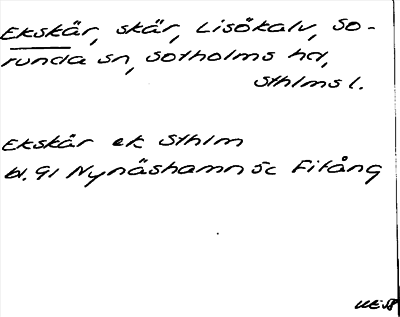 Ekskär, skär, Lisökalv, So-
runda sn, Sotholms hd,
Sthlms l.
Ekskär ek Sthlm
bl. 91 Nynäshamn 5c Fifång